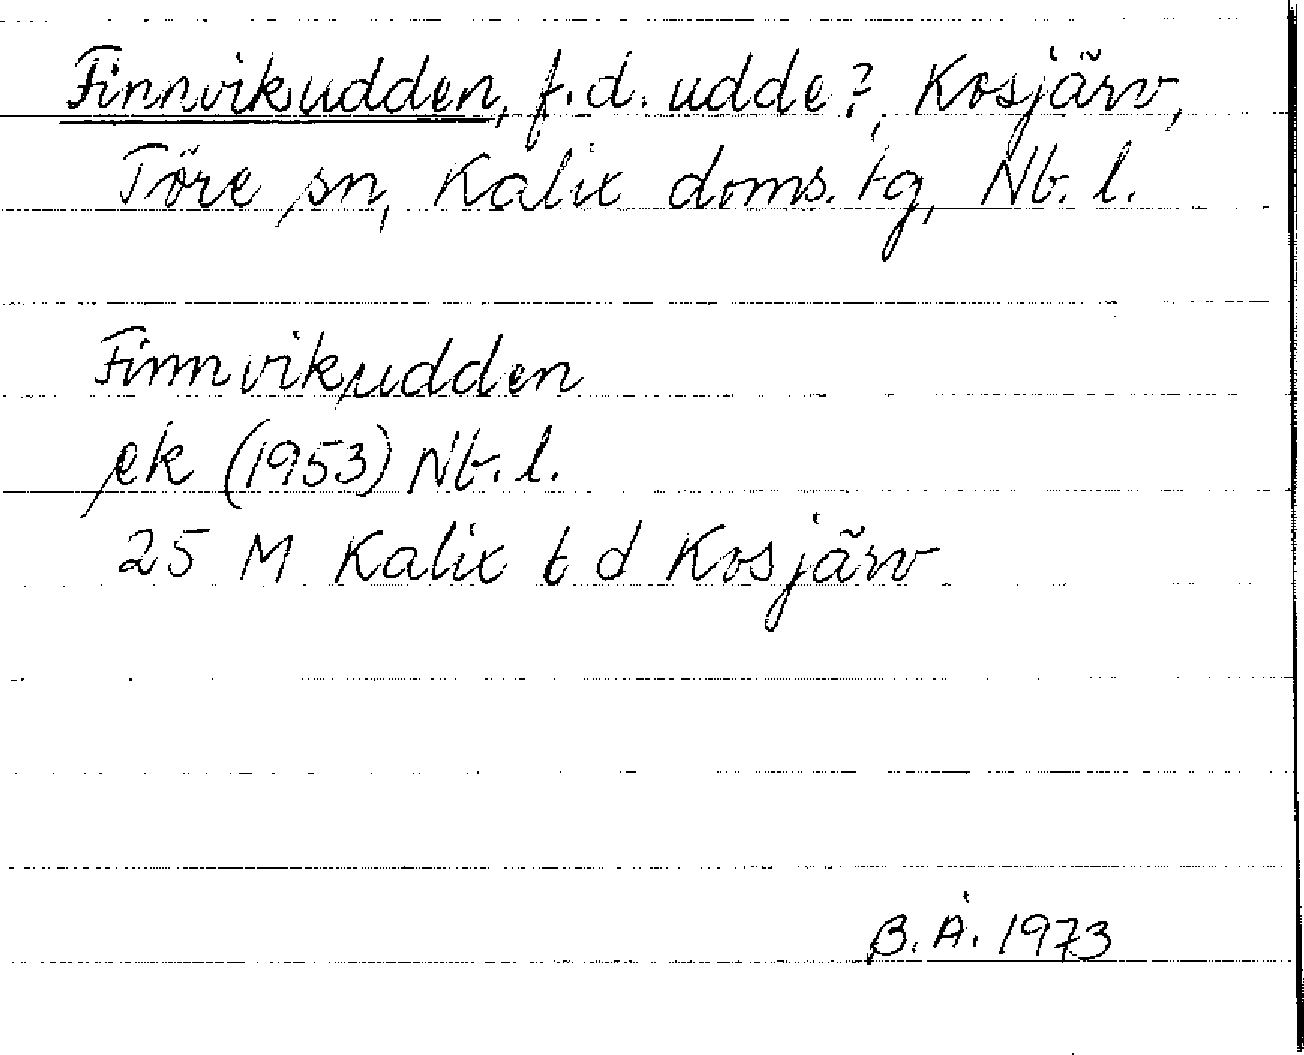 Finnvikudden, f.d. udde?, Kosjärv,
Töre sn, Kalix doms. tg, Nb. l.
Finnvikudden
ek (1953) Nb. l.
25 M Kalix t d Kosjärv
B. Å. 1973